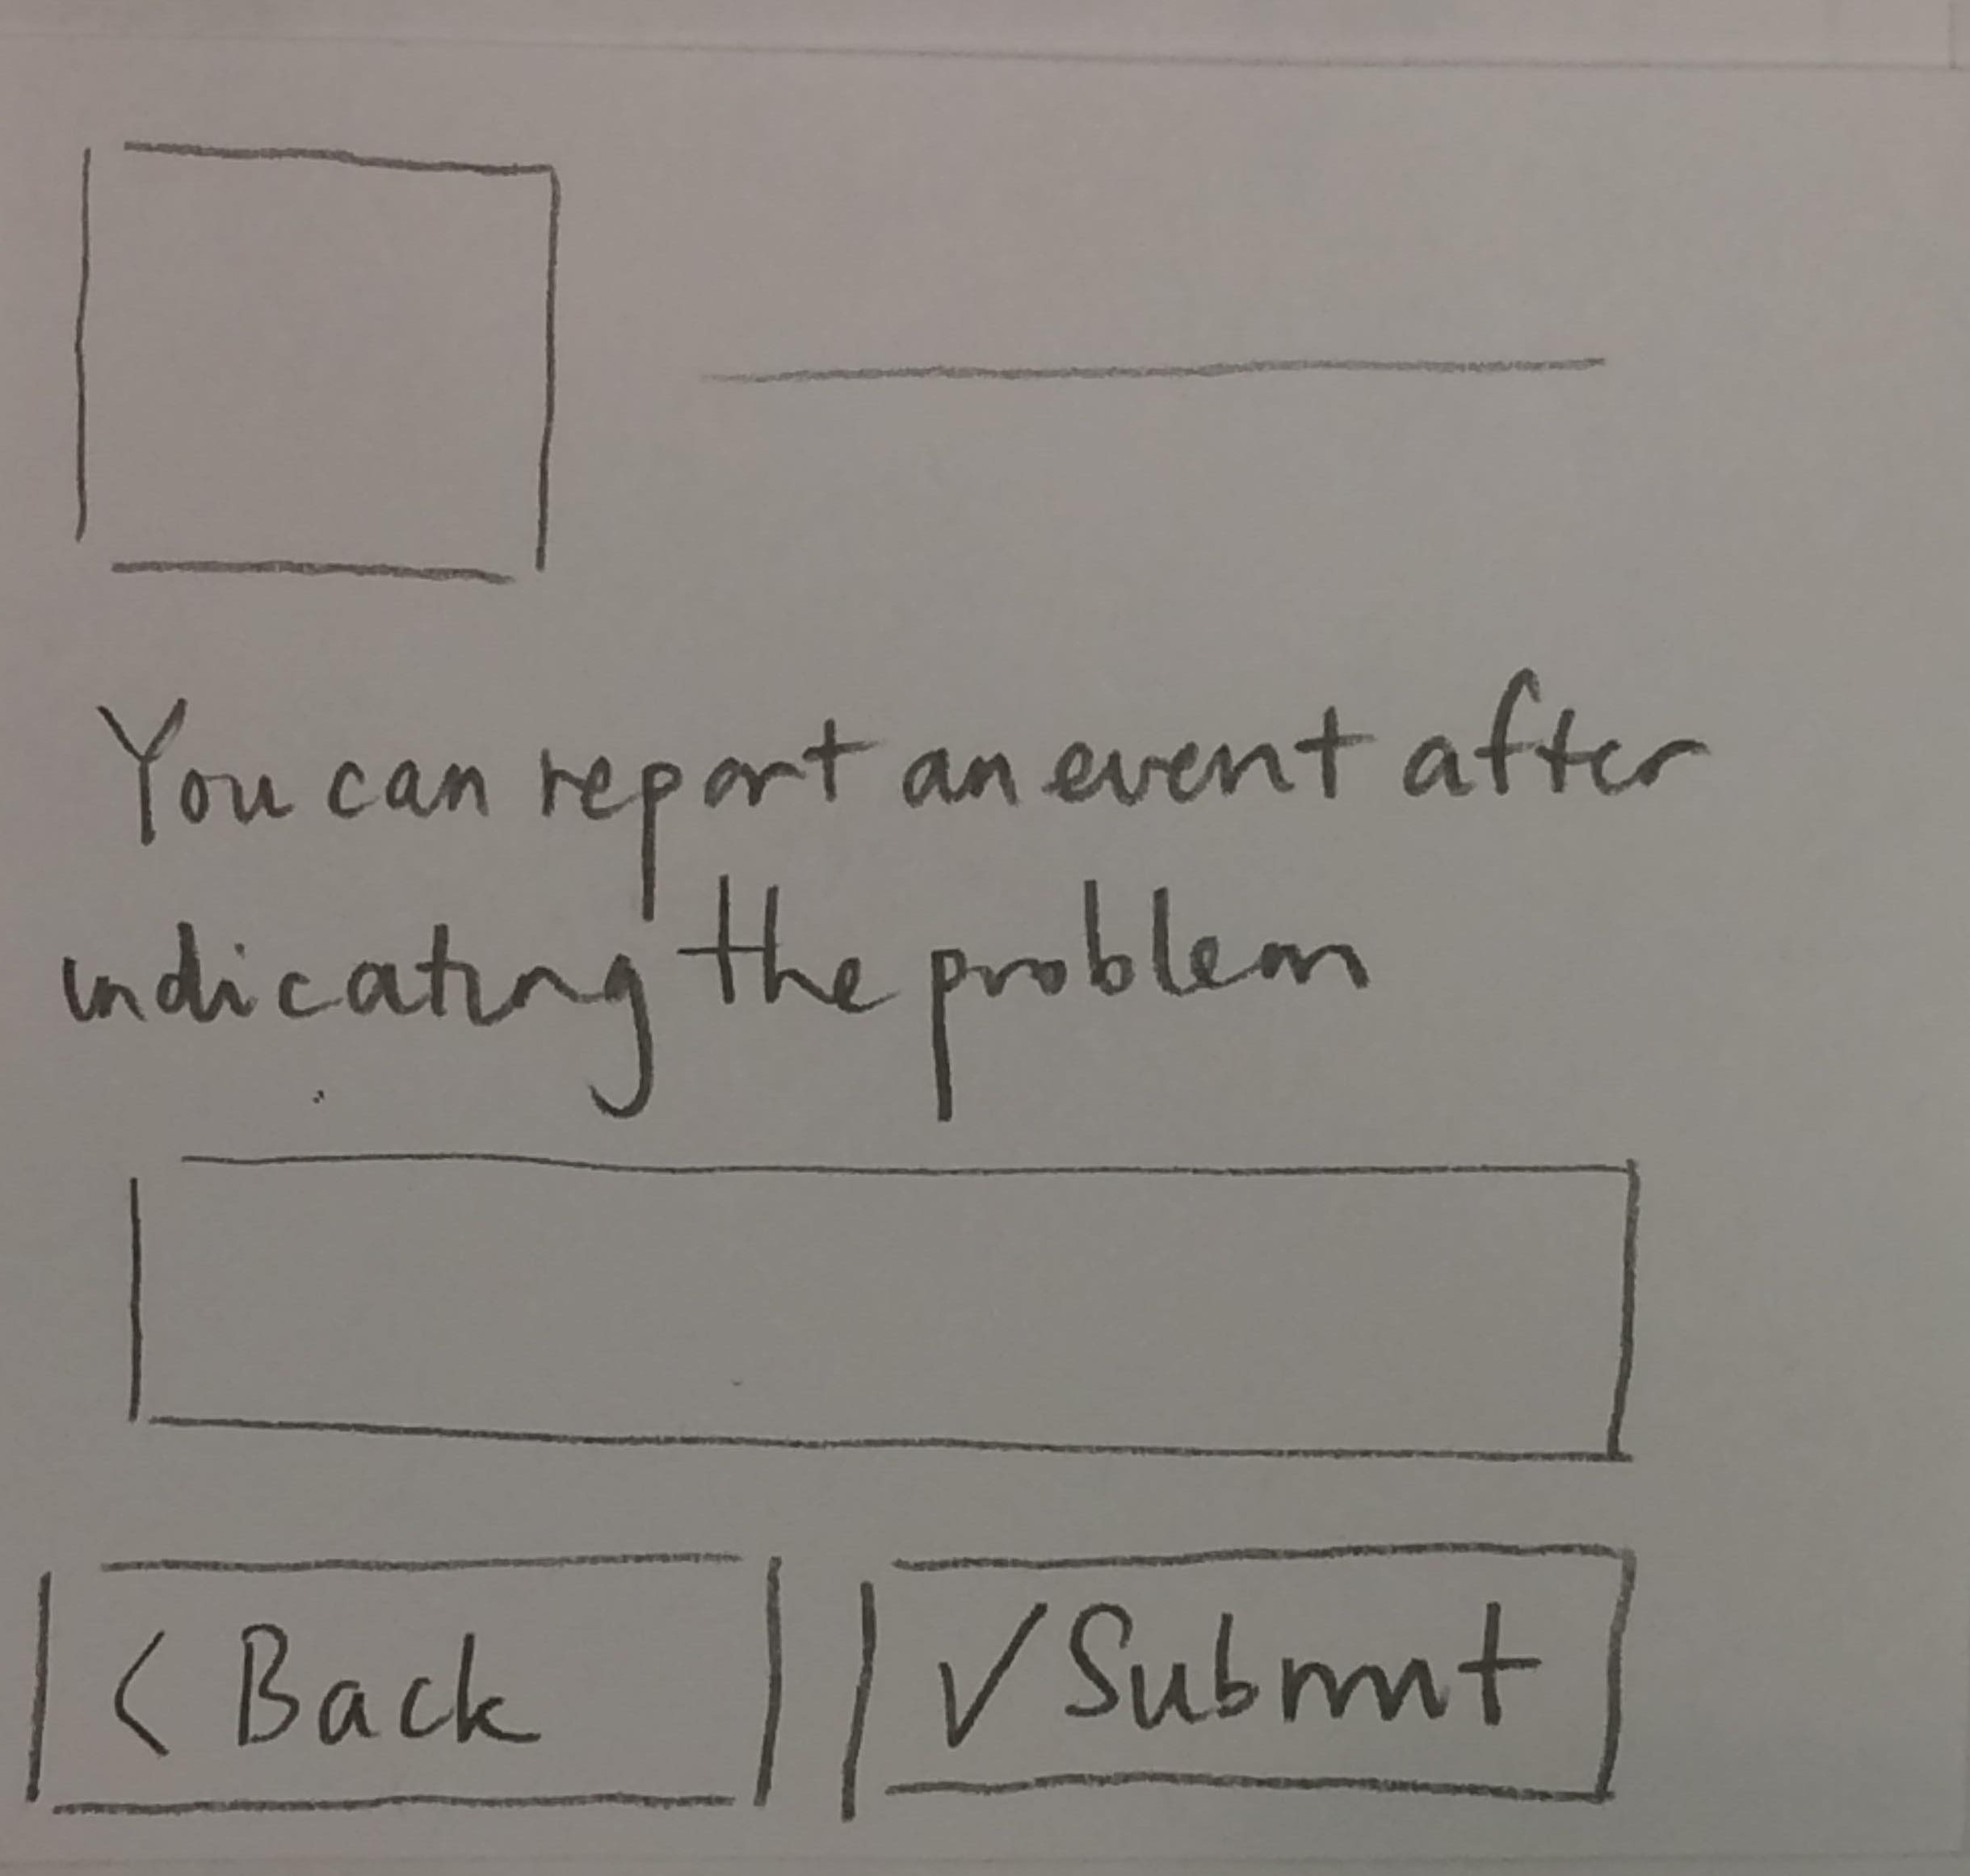 You can report an event after
indicating the problem
< Back
✓ Submit